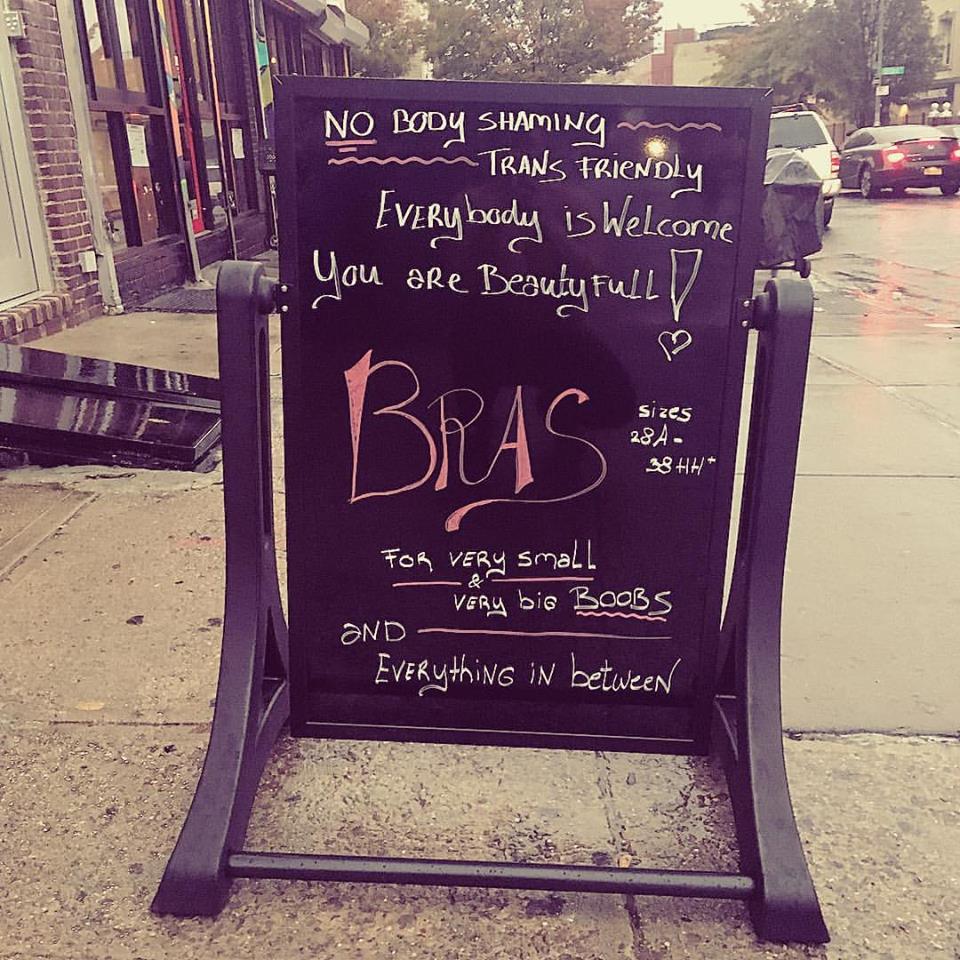 NO BODY SHAMING
TRANS FRIENDLY
EVERYbody is Welcome
You are BeautyFull!
BRAS
sizes
28A-
38HH+
FOR VERY small
&
VERY big BOOBS
AND
EVERYthING IN betweeN